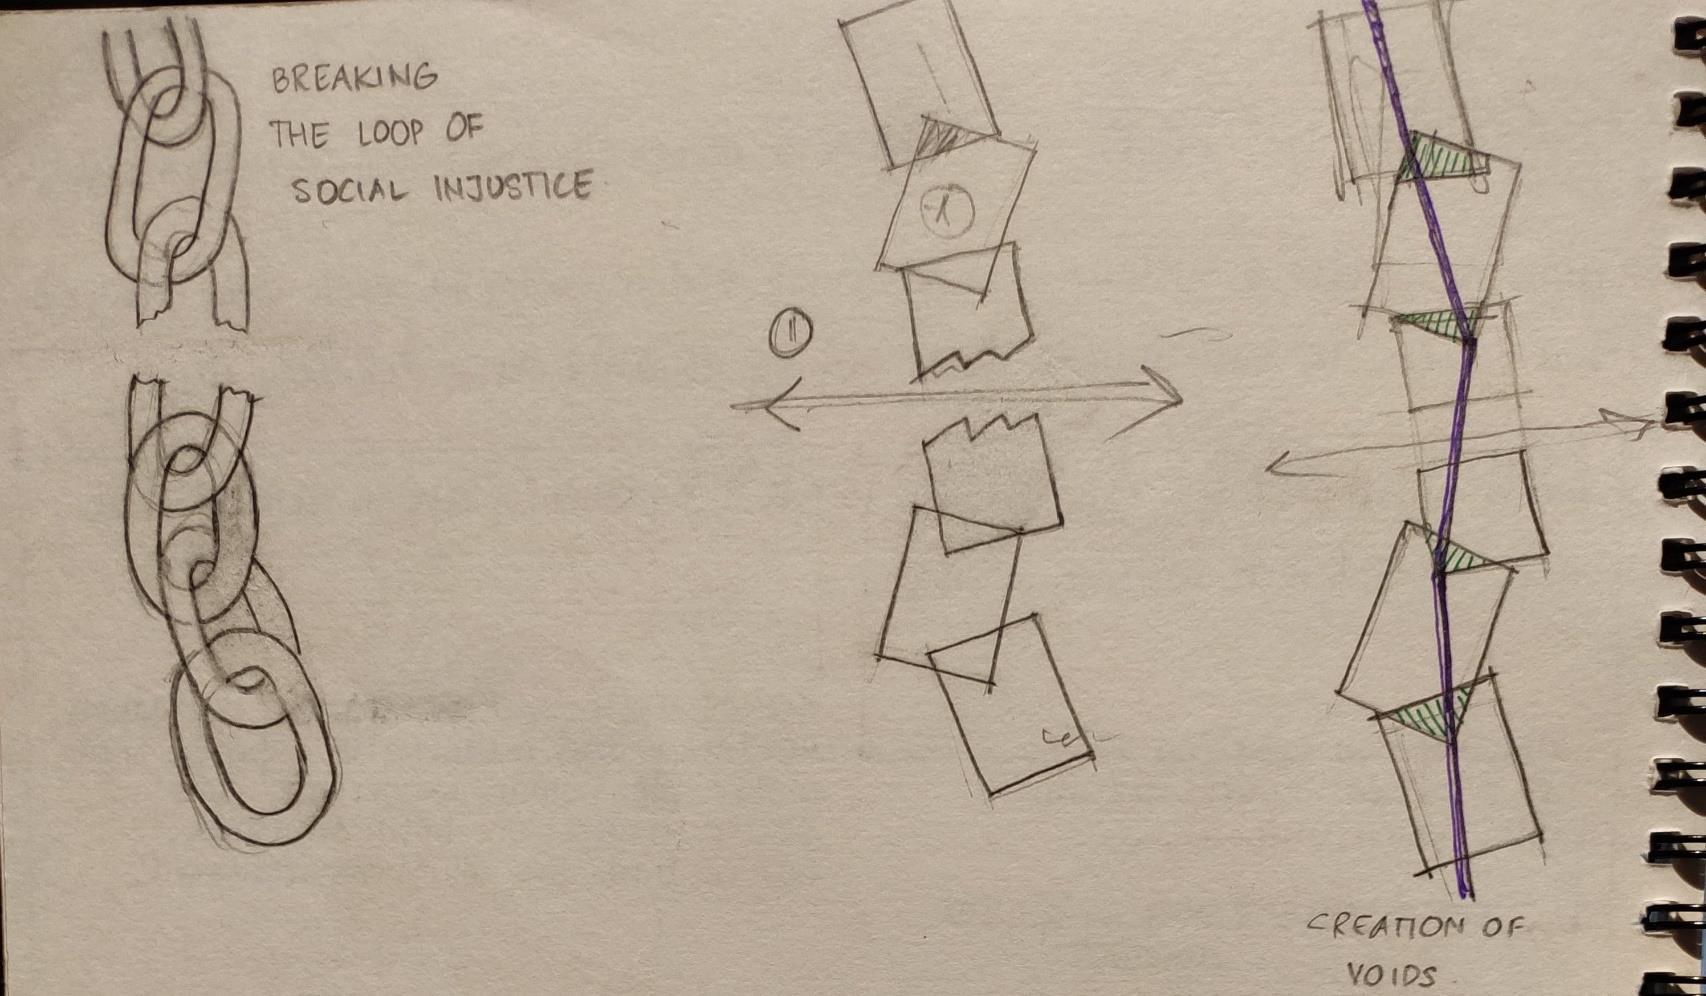 BREAKING
THE LOOP OF
SOCIAL INJUSTICE
CREATION OF
VOIDS